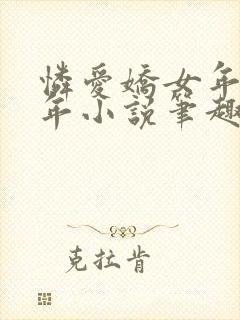 憐愛嬌女年
年小説筆趣
克拉肯